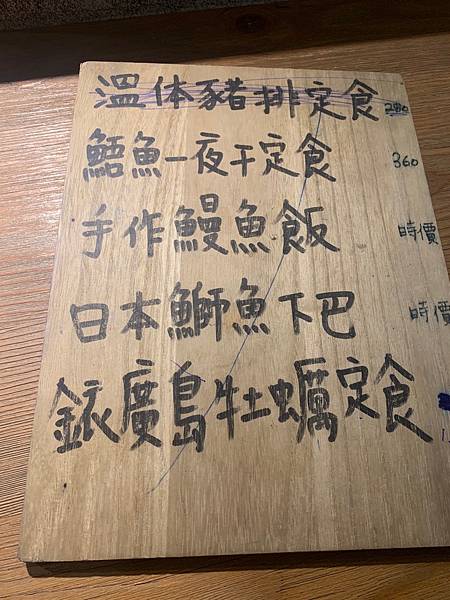 溫体豬排定食 280
鯌魚一夜干定食 360
手作鰻魚飯 時價
日本鰤魚下巴 時價
廣島牡蠣定食